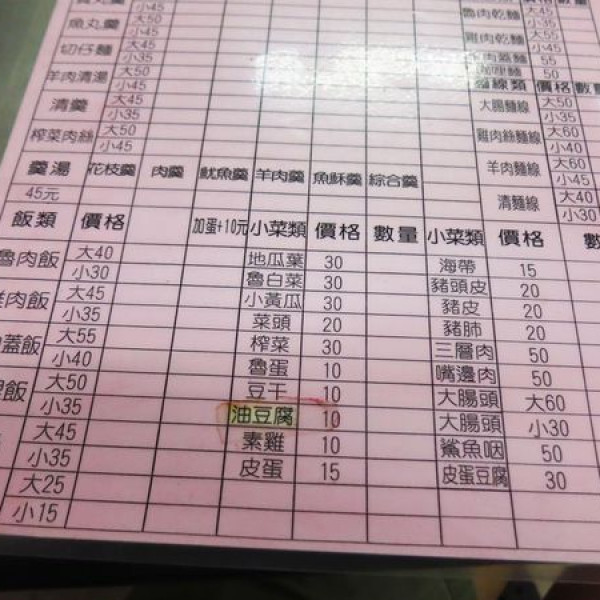 大45
小45
魚丸羹 大45
小35
切仔麵 大45
小35
羊肉清湯 大50
小45
清羹 大45
小35
榨菜肉絲 大50
小45
魯肉乾麵 大45
小35
雞肉乾麵 大50
小40
55
50
價格 數量
大腸麵線 大50
小35
雞肉絲麵線 大60
小40
羊肉麵線 大60
小45
清麵線 大40
小30
羹湯 花枝羹 肉羹 魷魚羹 羊肉羹 魚酥羹 綜合羹
45元
飯類 價格 加蛋+10元 小菜類 價格 數量 小菜類 價格
魯肉飯 大40 地瓜葉 30 海帶 15
小30 魯白菜 30 豬頭皮 20
肉飯 大45 小黃瓜 30 豬皮 20
小35 菜頭 20 豬肺 20
蓋飯 大55 榨菜 30 三層肉 50
小40 魯蛋 10 嘴邊肉 50
飯 大50 豆干 10 大腸頭 大60
小35 油豆腐 10 大腸頭 小30
大45 素雞 10 鯊魚咽 50
小35 皮蛋 15 皮蛋豆腐 30
大25
小15